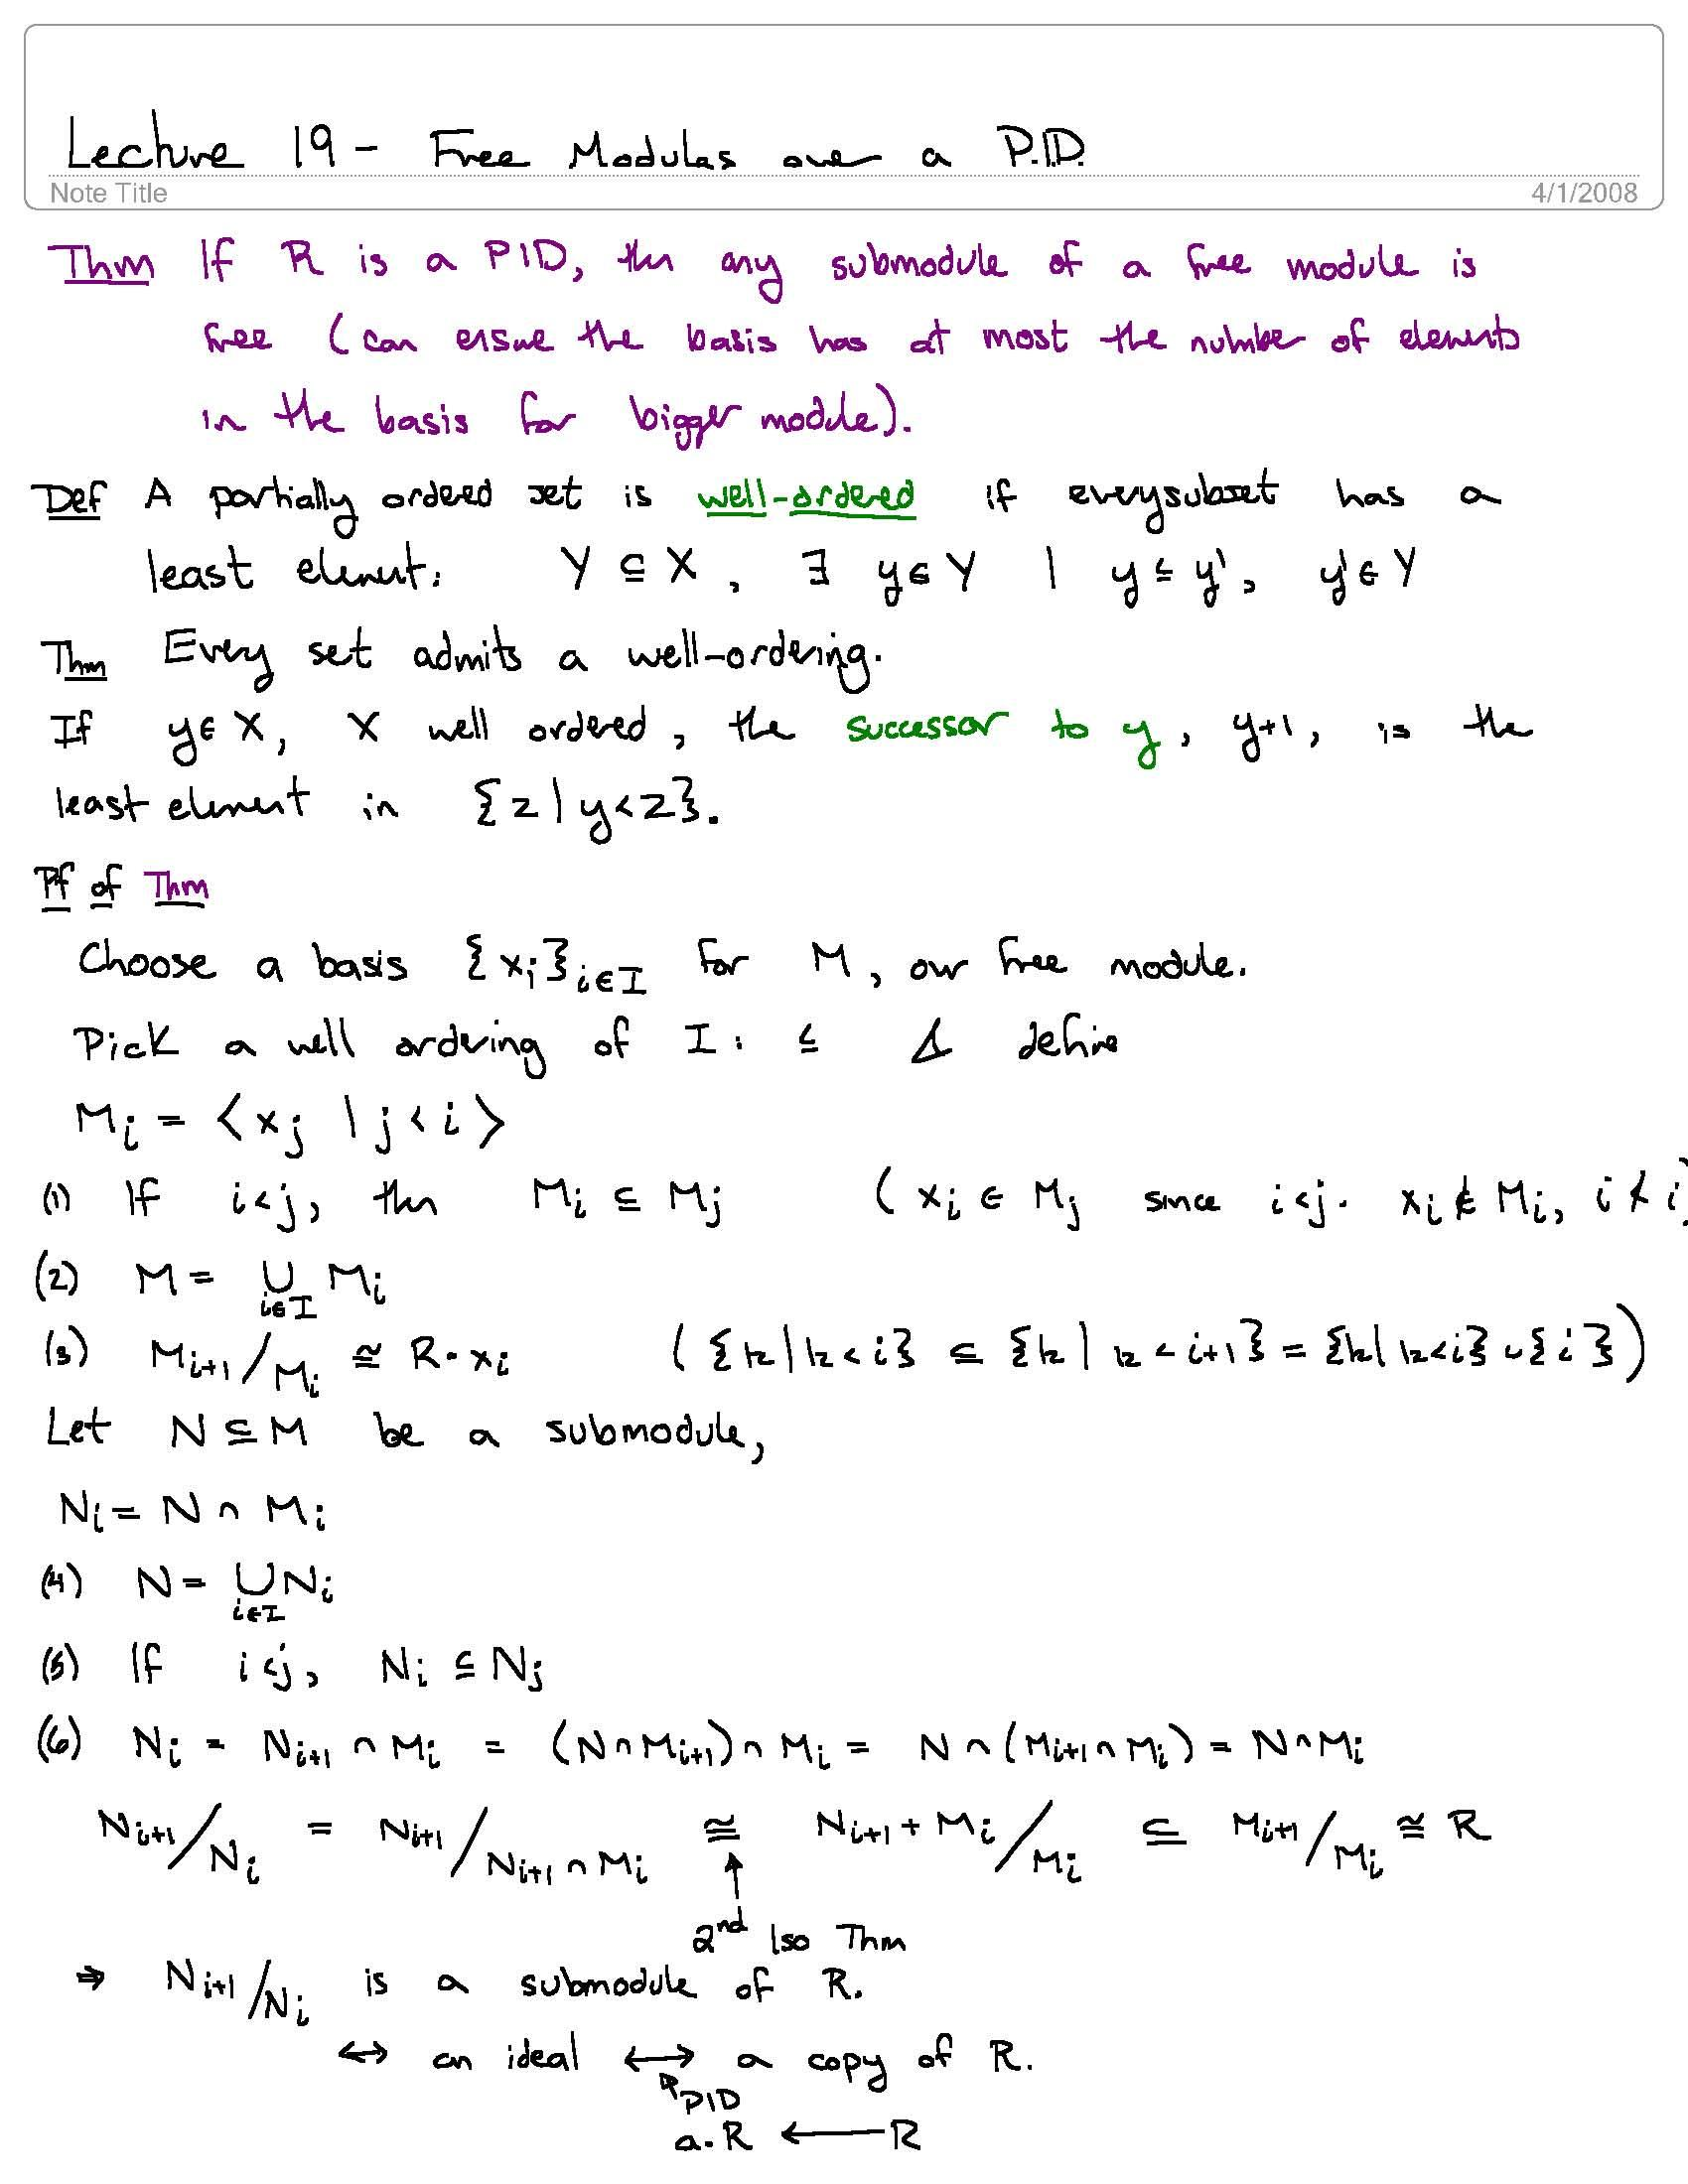 Lecture 19 - Free Modules over a P.I.D.
Note Title 4/1/2008
Thm If R is a PID, thn any submodule of a free module is
free (can ensure the basis has at most the number of elements
in the basis for bigger module).
Def A partially ordered set is well-ordered if every subset has a
least element: Y ⊆ X, ∃ y ∈ Y | y ≤ y', y' ∈ Y
Thm Every set admits a well-ordering.
If y ∈ X, X well ordered, the successor to y, y+1, is the
least element in {z | y < z}.
Pf of Thm
Choose a basis {x_i}_{i∈I} for M, our free module.
Pick a well ordering of I: ≤ & define
M_i = <x_j | j < i>
(1) If i < j, thn M_i ⊆ M_j (x_i ∈ M_j since i < j. x_i ∉ M_i, i ≮ i)
(2) M = ∪_{i∈I} M_i
(3) M_{i+1}/M_i ≅ R·x_i ({k | k < i} ⊆ {k | k < i+1} = {k | k < i} ∪ {i})
Let N ⊆ M be a submodule,
N_i = N ∩ M_i
(4) N = ∪_{i∈I} N_i
(5) If i < j, N_i ⊆ N_j
(6) N_i = N_{i+1} ∩ M_i = (N ∩ M_{i+1}) ∩ M_i = N ∩ (M_{i+1} ∩ M_i) = N ∩ M_i
N_{i+1}/N_i = N_{i+1}/N_{i+1} ∩ M_i ≅ N_{i+1} + M_i/M_i ⊆ M_{i+1}/M_i ≅ R
↑
2nd Iso Thm
⇒ N_{i+1}/N_i is a submodule of R.
↔ an ideal ↔ a copy of R.
↖PID
a·R ← R